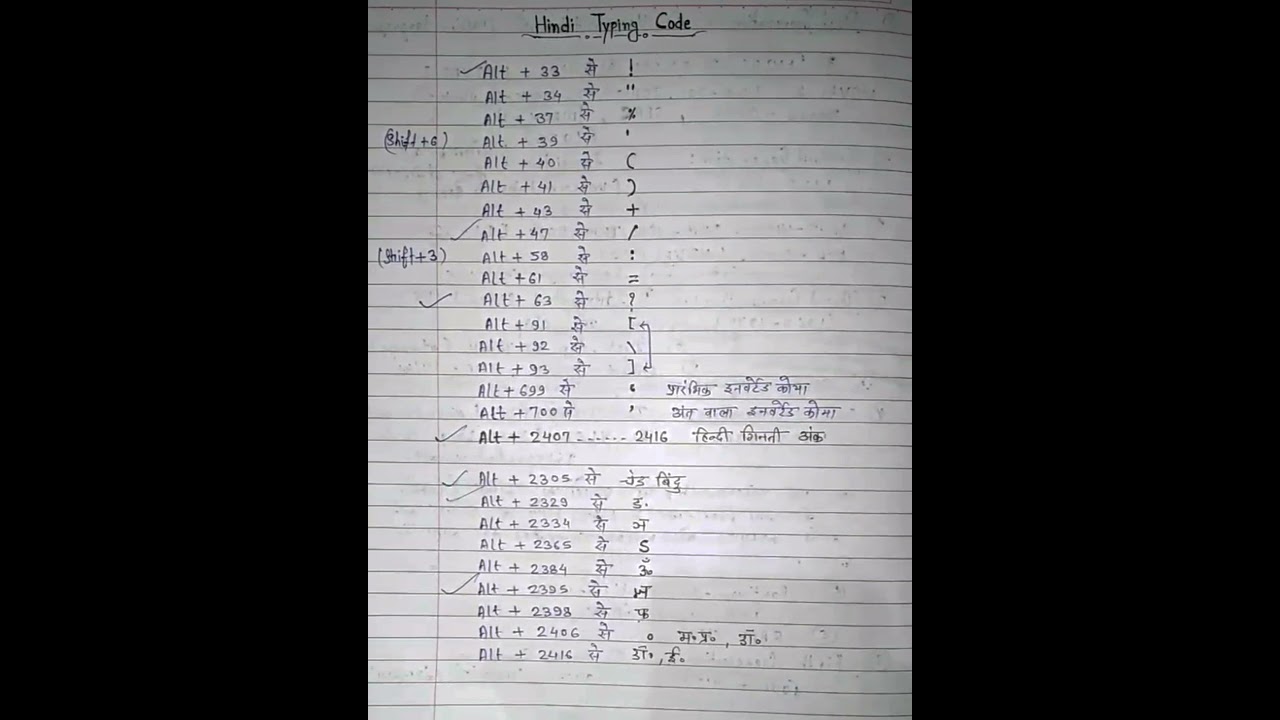 Hindi Typing Code
Alt + 33 से !
Alt + 34 से "
Alt + 37 से %
(Shift+6) Alt + 39 से '
Alt + 40 से (
Alt + 41 से )
Alt + 43 से +
Alt + 47 से /
(Shift+3) Alt + 58 से :
Alt + 61 से =
Alt + 63 से ?
Alt + 91 से [
Alt + 92 से \
Alt + 93 से ]
Alt + 699 से ‘ प्रारंभिक इनवर्टेड कोमा
Alt + 700 से ’ अंत वाला इनवर्टेड कोमा
Alt + 2407 ....... 2416 हिन्दी गिनती अंक
Alt + 2305 से चंद्र बिंदु
Alt + 2329 से ङ
Alt + 2334 से ञ
Alt + 2365 से ऽ
Alt + 2384 से ॐ
Alt + 2395 से ज़
Alt + 2398 से फ़
Alt + 2406 से ० म॰प्र॰, डॉ॰
Alt + 2416 से डॉ॰, ई॰